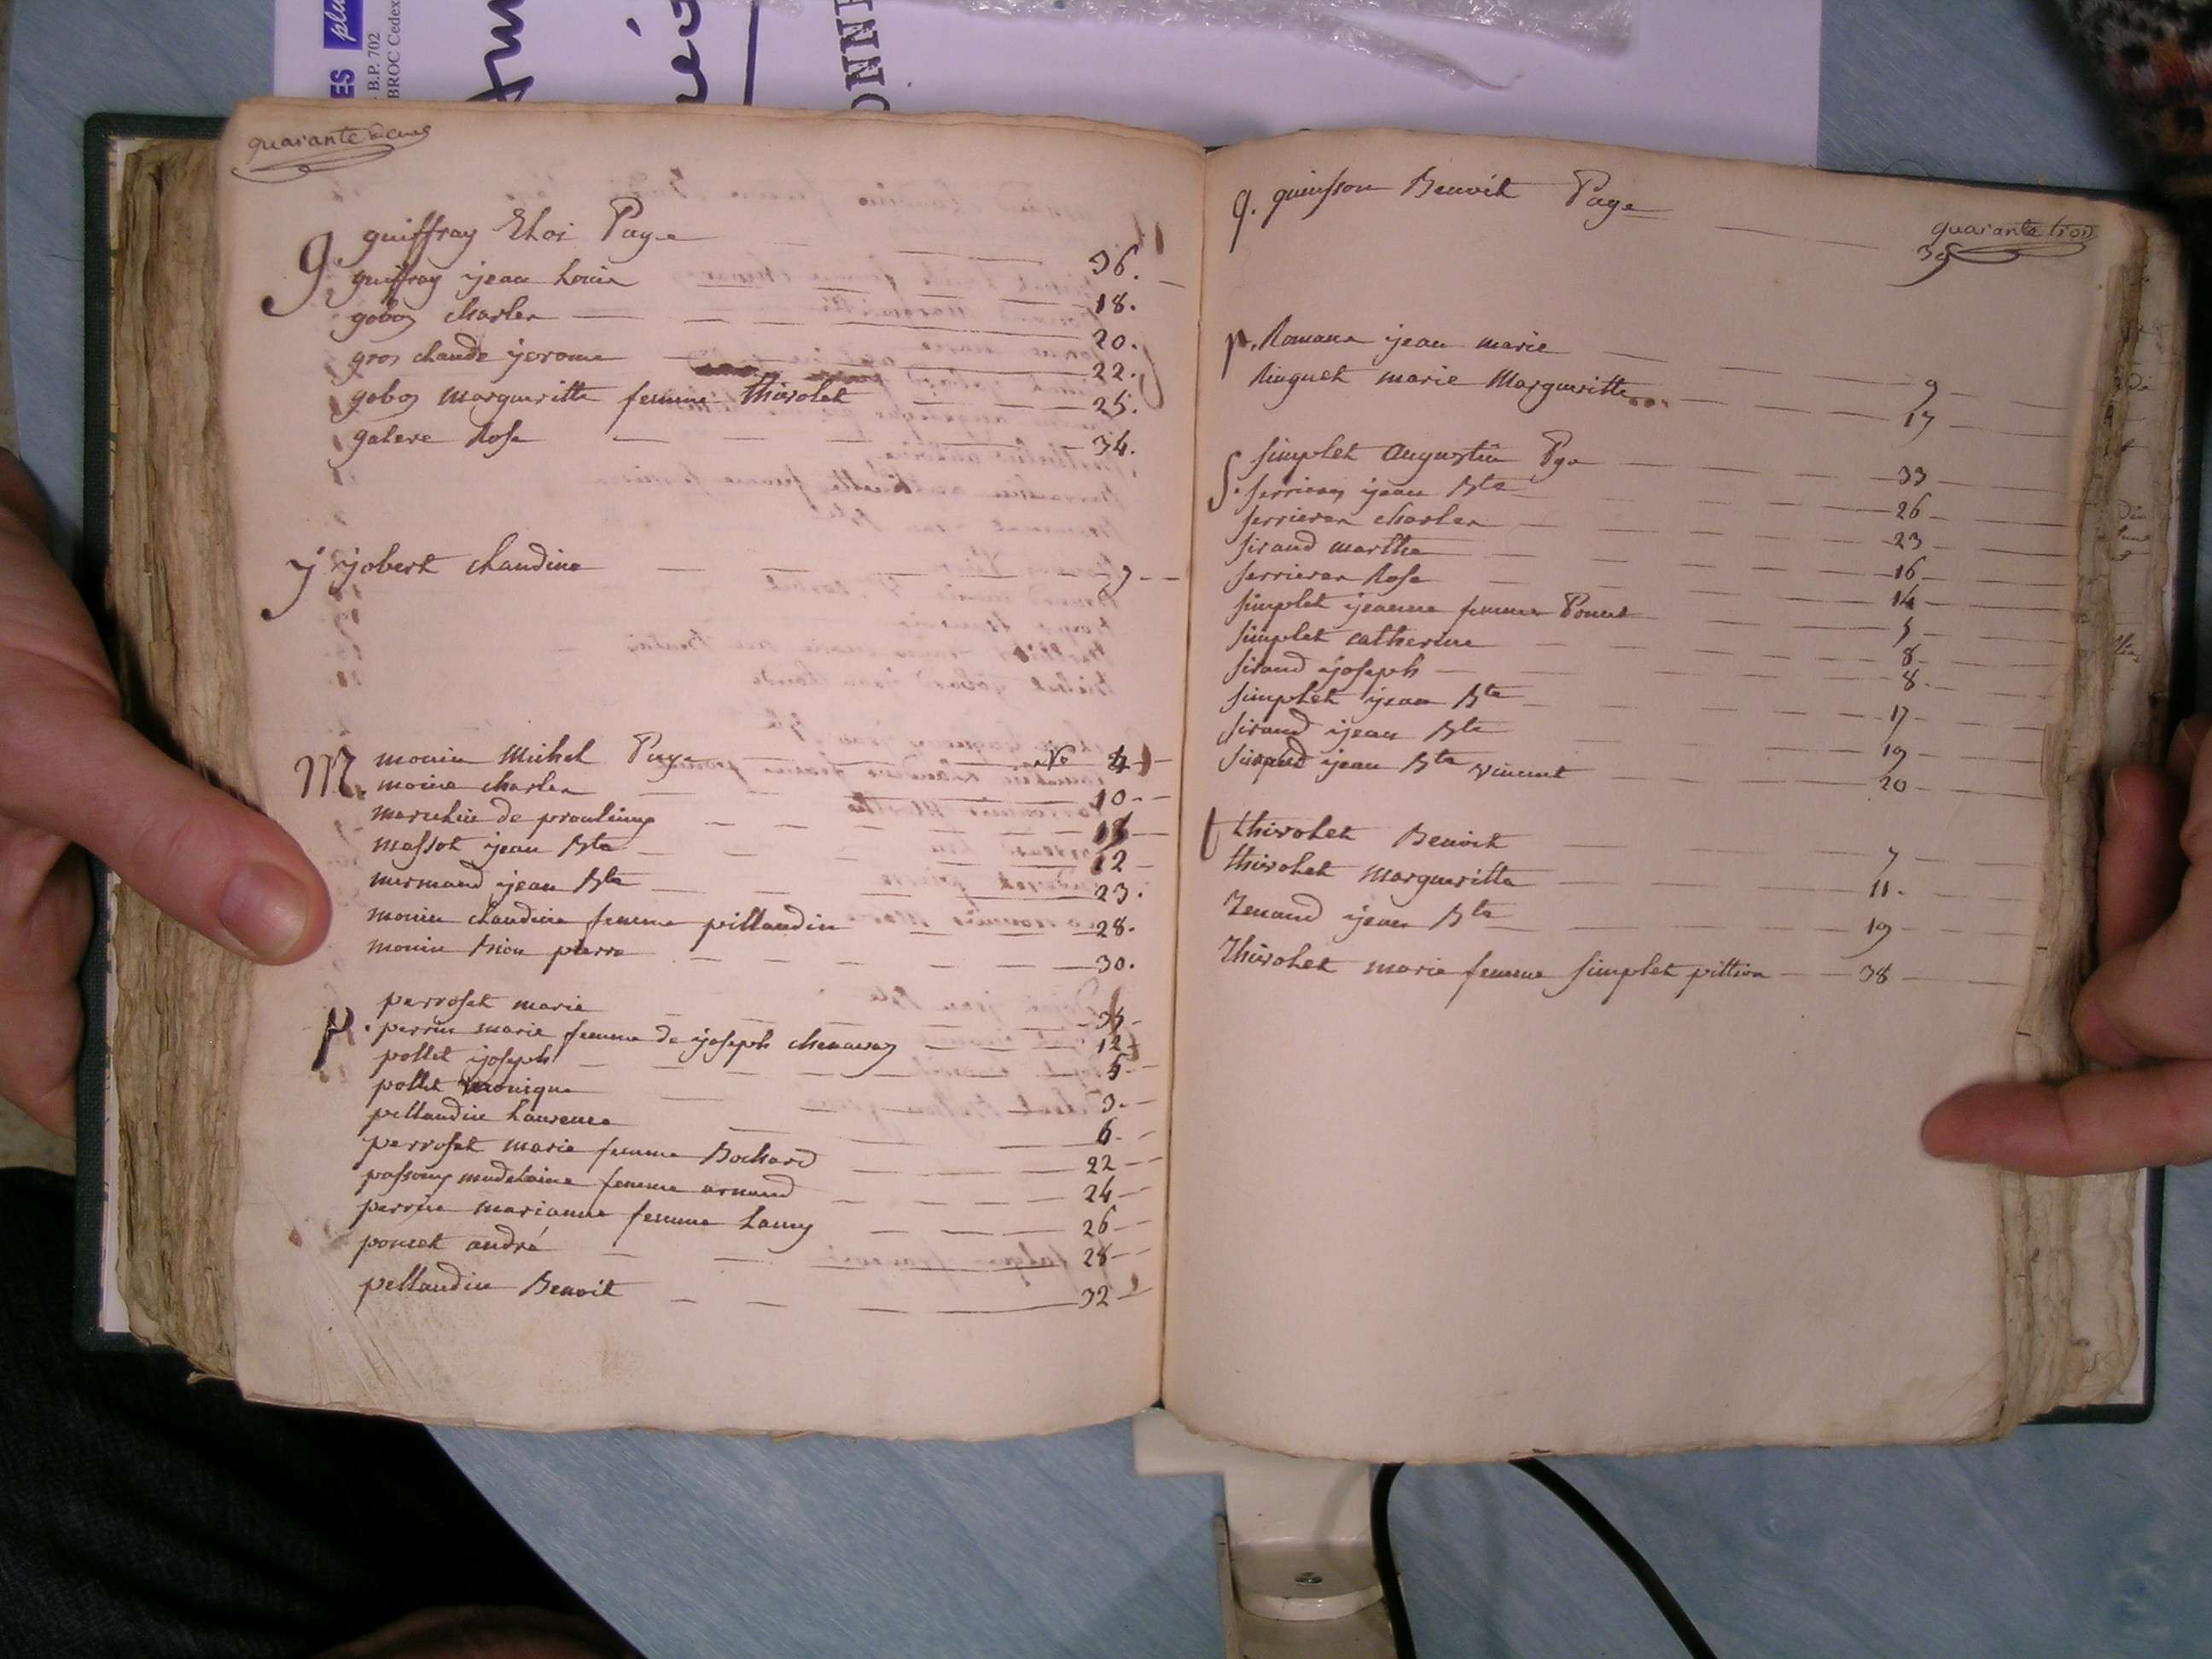 plu
ES
B.P. 702
BROC Cedex
ONN
quarante deux
g. guiffray Eloi Page 36.
guiffray jean Louis 18.
goboz charles 20.
gros claude jerome 22.
goboz margueritte femme thivolet 25.
galere Rose 34.
j. jobert claudine 7
M. monin Michel Page No 4
moine charles 10
maruchin de proulieug
massot jean Bte 12
mermand jean Bte 23.
monin claudine femme pillaudin 28.
monin Bion pierre 30.
perroset marie
p. perrin marie femme de joseph chenavaz 12
pollet joseph 5
pollet veronique 3.
pellaudin Laurence 6.
perroset marie femme Bochard 22
passouy madelaine femme arnaud 24
perrin marianne femme Lamy 26
poncet andré 28
pellaudin Benoit 32
q. quinsson Benoit Page
quarante trois
39
Romana jean marie 9
Ringuet marie Margueritte 17
s. simplet augustin Pge 33
serrieres jean Bte 26
serrieres charles 23
siraud marthe 16
serrieres Rose 14
simplet jeanne femme Poncet 5
simplet catherine 8
siraud joseph 8.
simplet jean Bte 17
siraud jean Bte 19
siraud jean Bte vincent 20
t thivolet Benoit 7
thivolet margueritte 11.
Tenand jean Bte 19
Thivolet marie femme simplet pittion 38